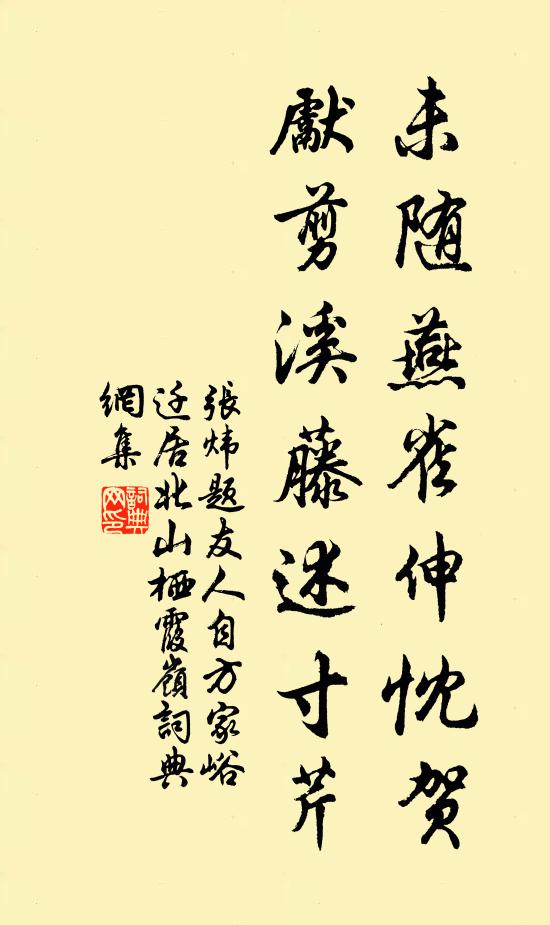 未随燕雀伸忱贺
献剪溪藤述寸芹
張炜题友人自方家峪
迁居北山栖霞嶺詞典
網集
詞典
网印